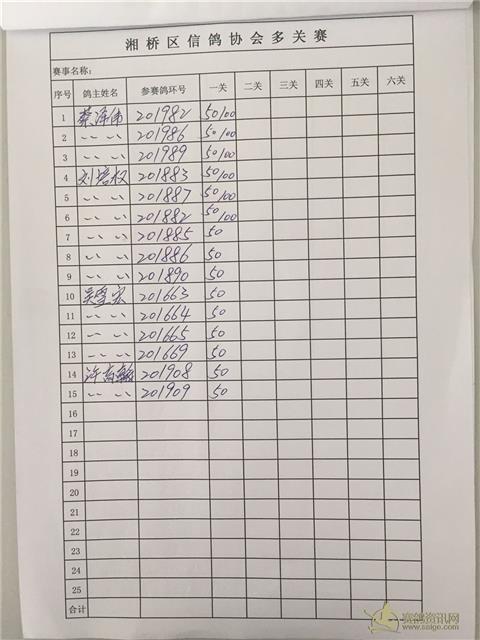 湘桥区信鸽协会多关赛
赛事名称:
序号 鸽主姓名 参赛鸽环号 一关 二关 三关 四关 五关 六关
1 蔡泽伟 201982 50/100
2 〃 〃 201986 50/100
3 〃 〃 201989 50/100
4 刘培权 201883 50/100
5 〃 〃 201887 50/100
6 〃 〃 201882 50/100
7 〃 〃 201885 50
8 〃 〃 201886 50
9 〃 〃 201890 50
10 201663 50
11 〃 〃 201664 50
12 〃 〃 201665 50
13 〃 〃 201669 50
14 201908 50
15 〃 〃 201909 50
16
17
18
19
20
21
22
23
24
25
合计
赛鸽资讯网
www.saige.com